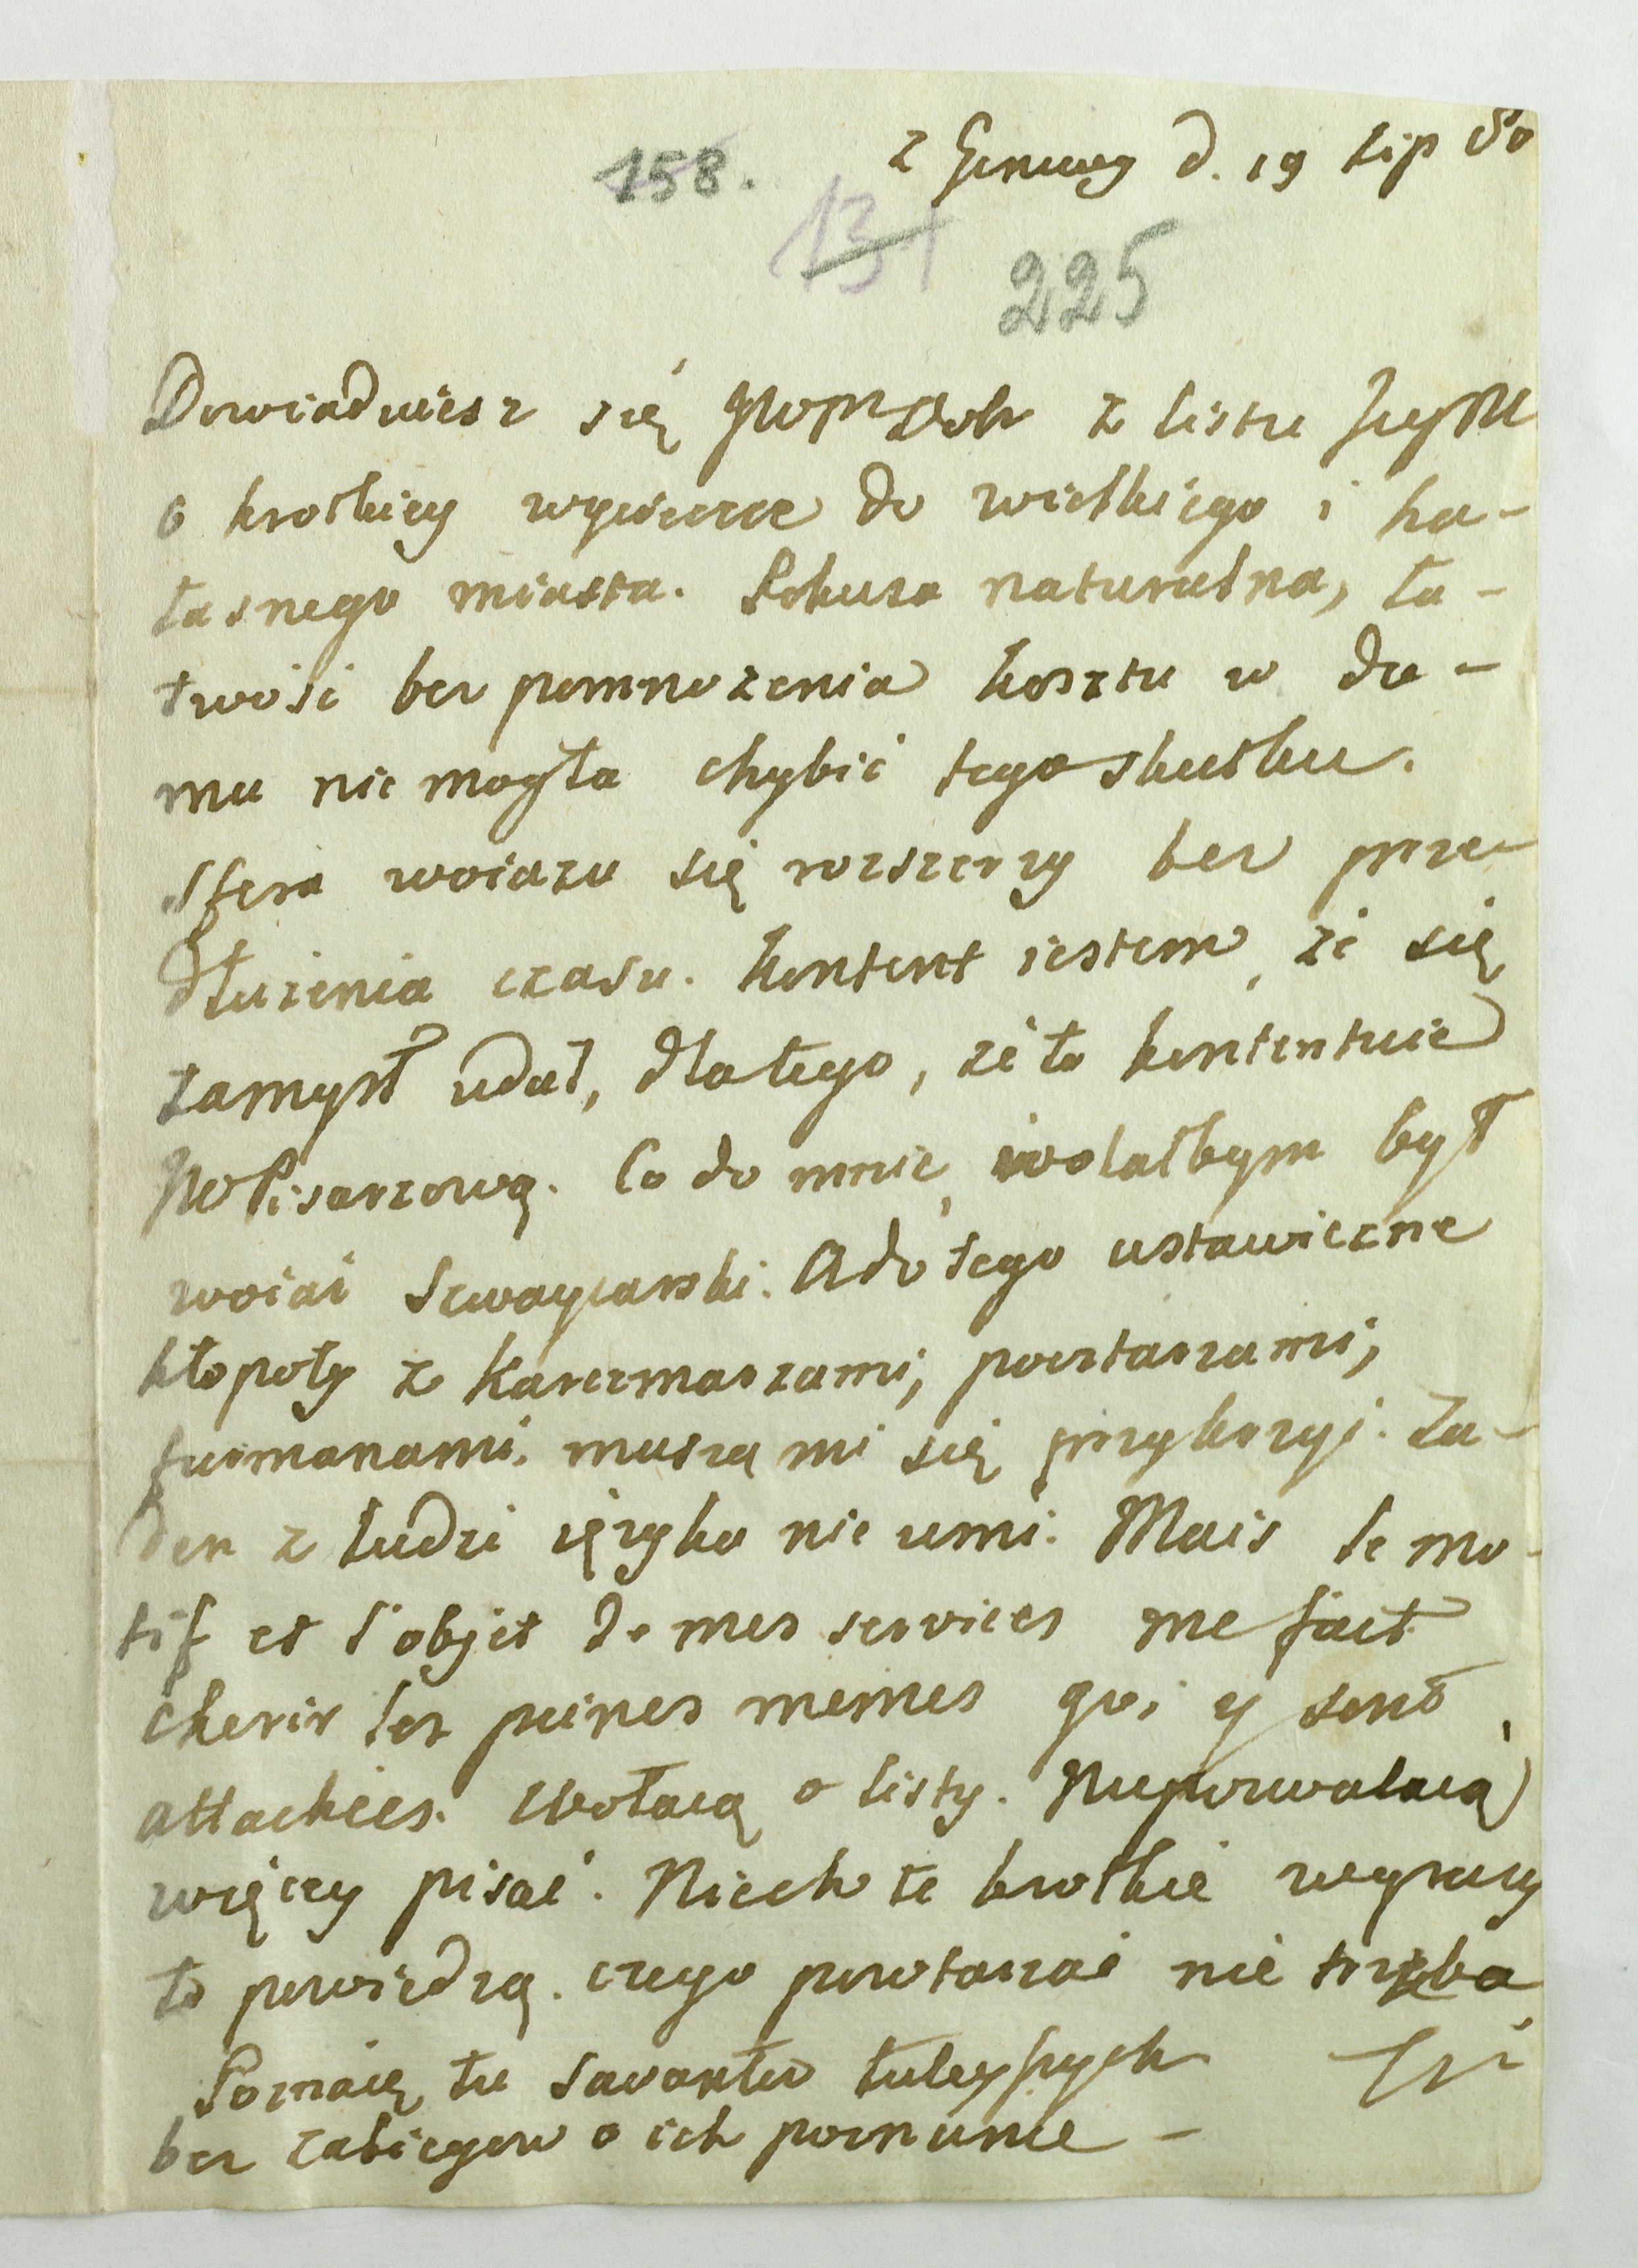 z Genewy d. 19 Lip 80
158.
131
225
Dowiaduiesz się JWPan Dob z listu Jey
o krotkiey wycieczce do wielkiego i ha-
łasnego miasta. Pokusa naturalna, ła-
twość bez pomnozenia kosztu w do-
mu nie mogła chybić tego skutku.
Sfera woiazu się rozszerzy bez prze-
dłużenia czasu. Kontent iestem, że się
zamysł udał, dlatego, że to kontentuie
JWPisarzową. Co do mnie, wolałbym był
woiaż Szwaycarski. A do tego ustawiczne
kłopoty z Karczmarzami, pocztarzami,
furmanami. muszą mi się przykrzyć. Ża-
den z ludzi ięzyka nie umi. Mais le mo-
tif et l'objet de mes services me fait
cherir les peines memes qui y sont
attachées. Wołaią o listy. Niepozwalaią
więcey pisać. Niech te krotkie wyrazy
to powiedzą. czego powtarzać nie trzeba
Poznaię tu Savantow tuteyszych
bez zabiegow o ich poznanie -